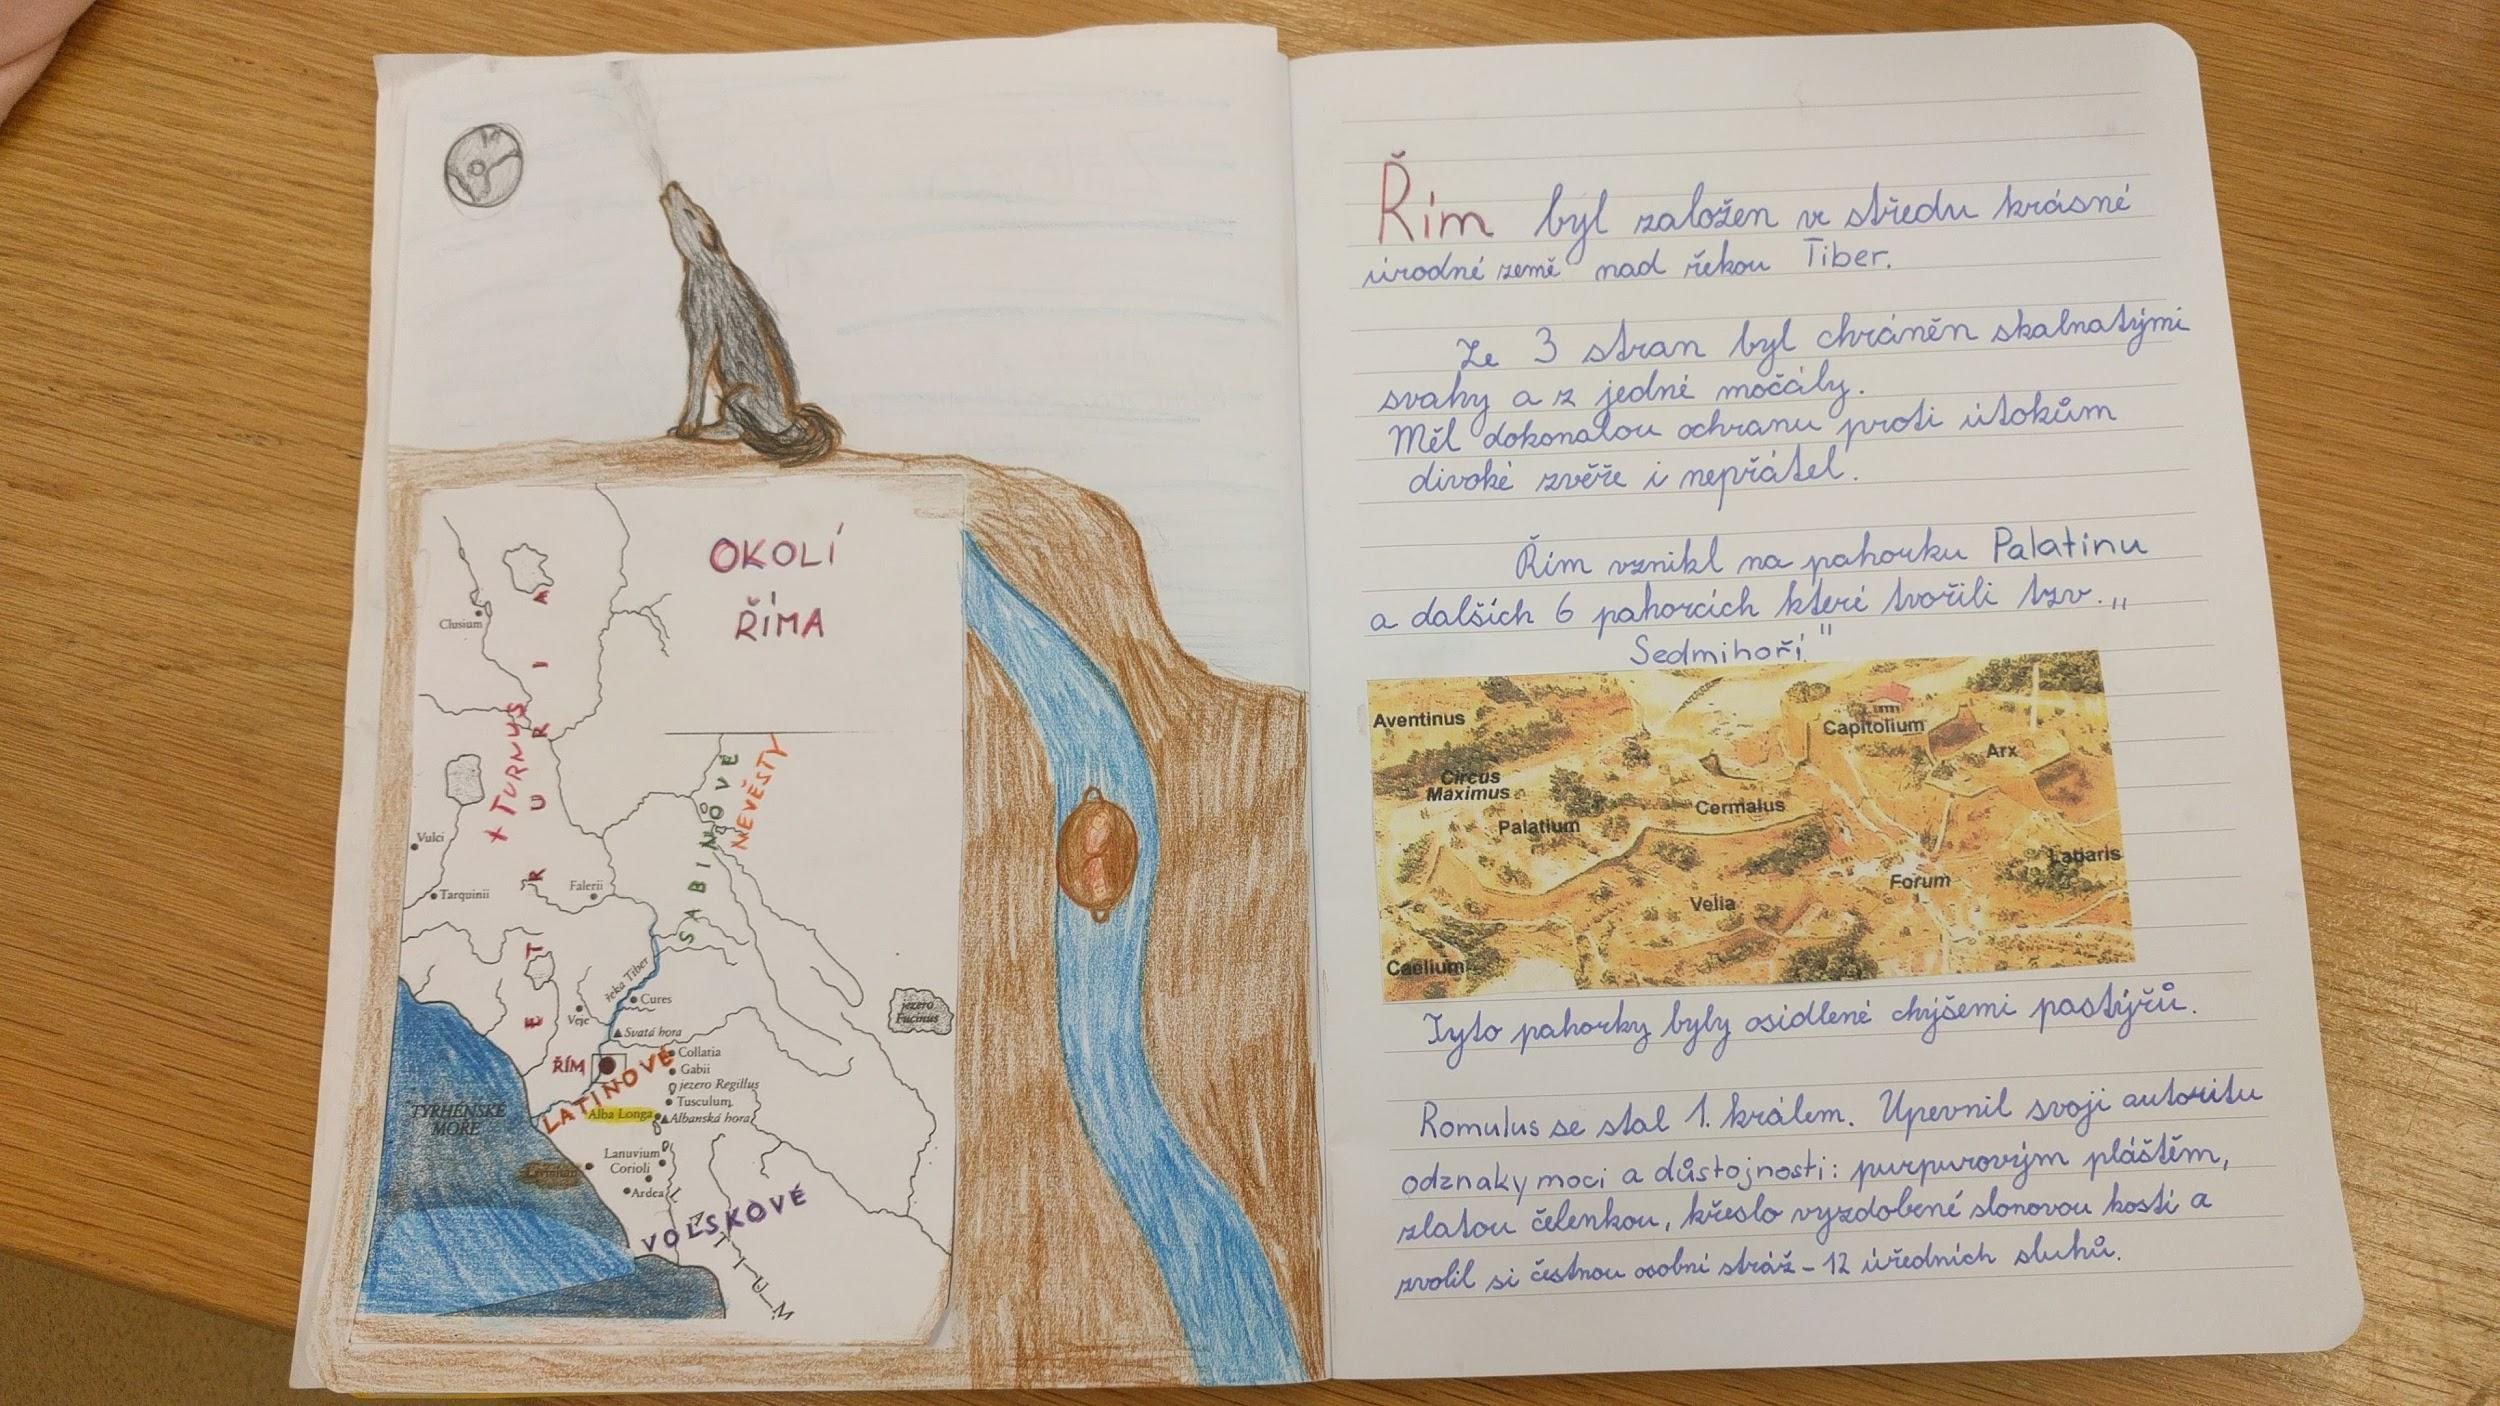 OKOLÍ
ŘÍMA
Clusium
ETRURIA
+ TURNYS
SABINOVÉ
NEVĚSTY
Vulci
Tarquinii
Falerii
řeka Tiber
Cures
Veje
Svatá hora
jezero
Fucinus
ŘÍM
LATINOVÉ
Collatia
Gabii
jezero Regillus
Tusculum
Alba Longa
Albanská hora
TYRHÉNSKÉ
MOŘE
Lanuvium
Corioli
Ardea
VOLSKOVÉ
LATIUM
Řím byl založen v středu krásné
úrodné země nad řekou Tiber.
Ze 3 stran byl chráněn skalnatými
svahy a z jedné močály.
Měl dokonalou ochranu proti útokům
divoké zvěře i nepřátel.
Řím vznikl na pahorku Palatinu
a dalších 6 pahorcích které tvořili tzv. „
Sedmihoří."
Aventinus
Capitolium
Arx
Circus
Maximus
Cermalus
Palatium
Latiaris
Forum
Velia
Caelium
Tyto pahorky byly osidlené chýšemi pastýřů.
Romulus se stal 1. králem. Upevnil svoji autoritu
odznaky moci a důstojnosti: purpurovým pláštěm,
zlatou čelenkou, křeslo vyzdobené slonovou kostí a
zvolil si čestnou osobní stráž - 12 úředních sluhů.